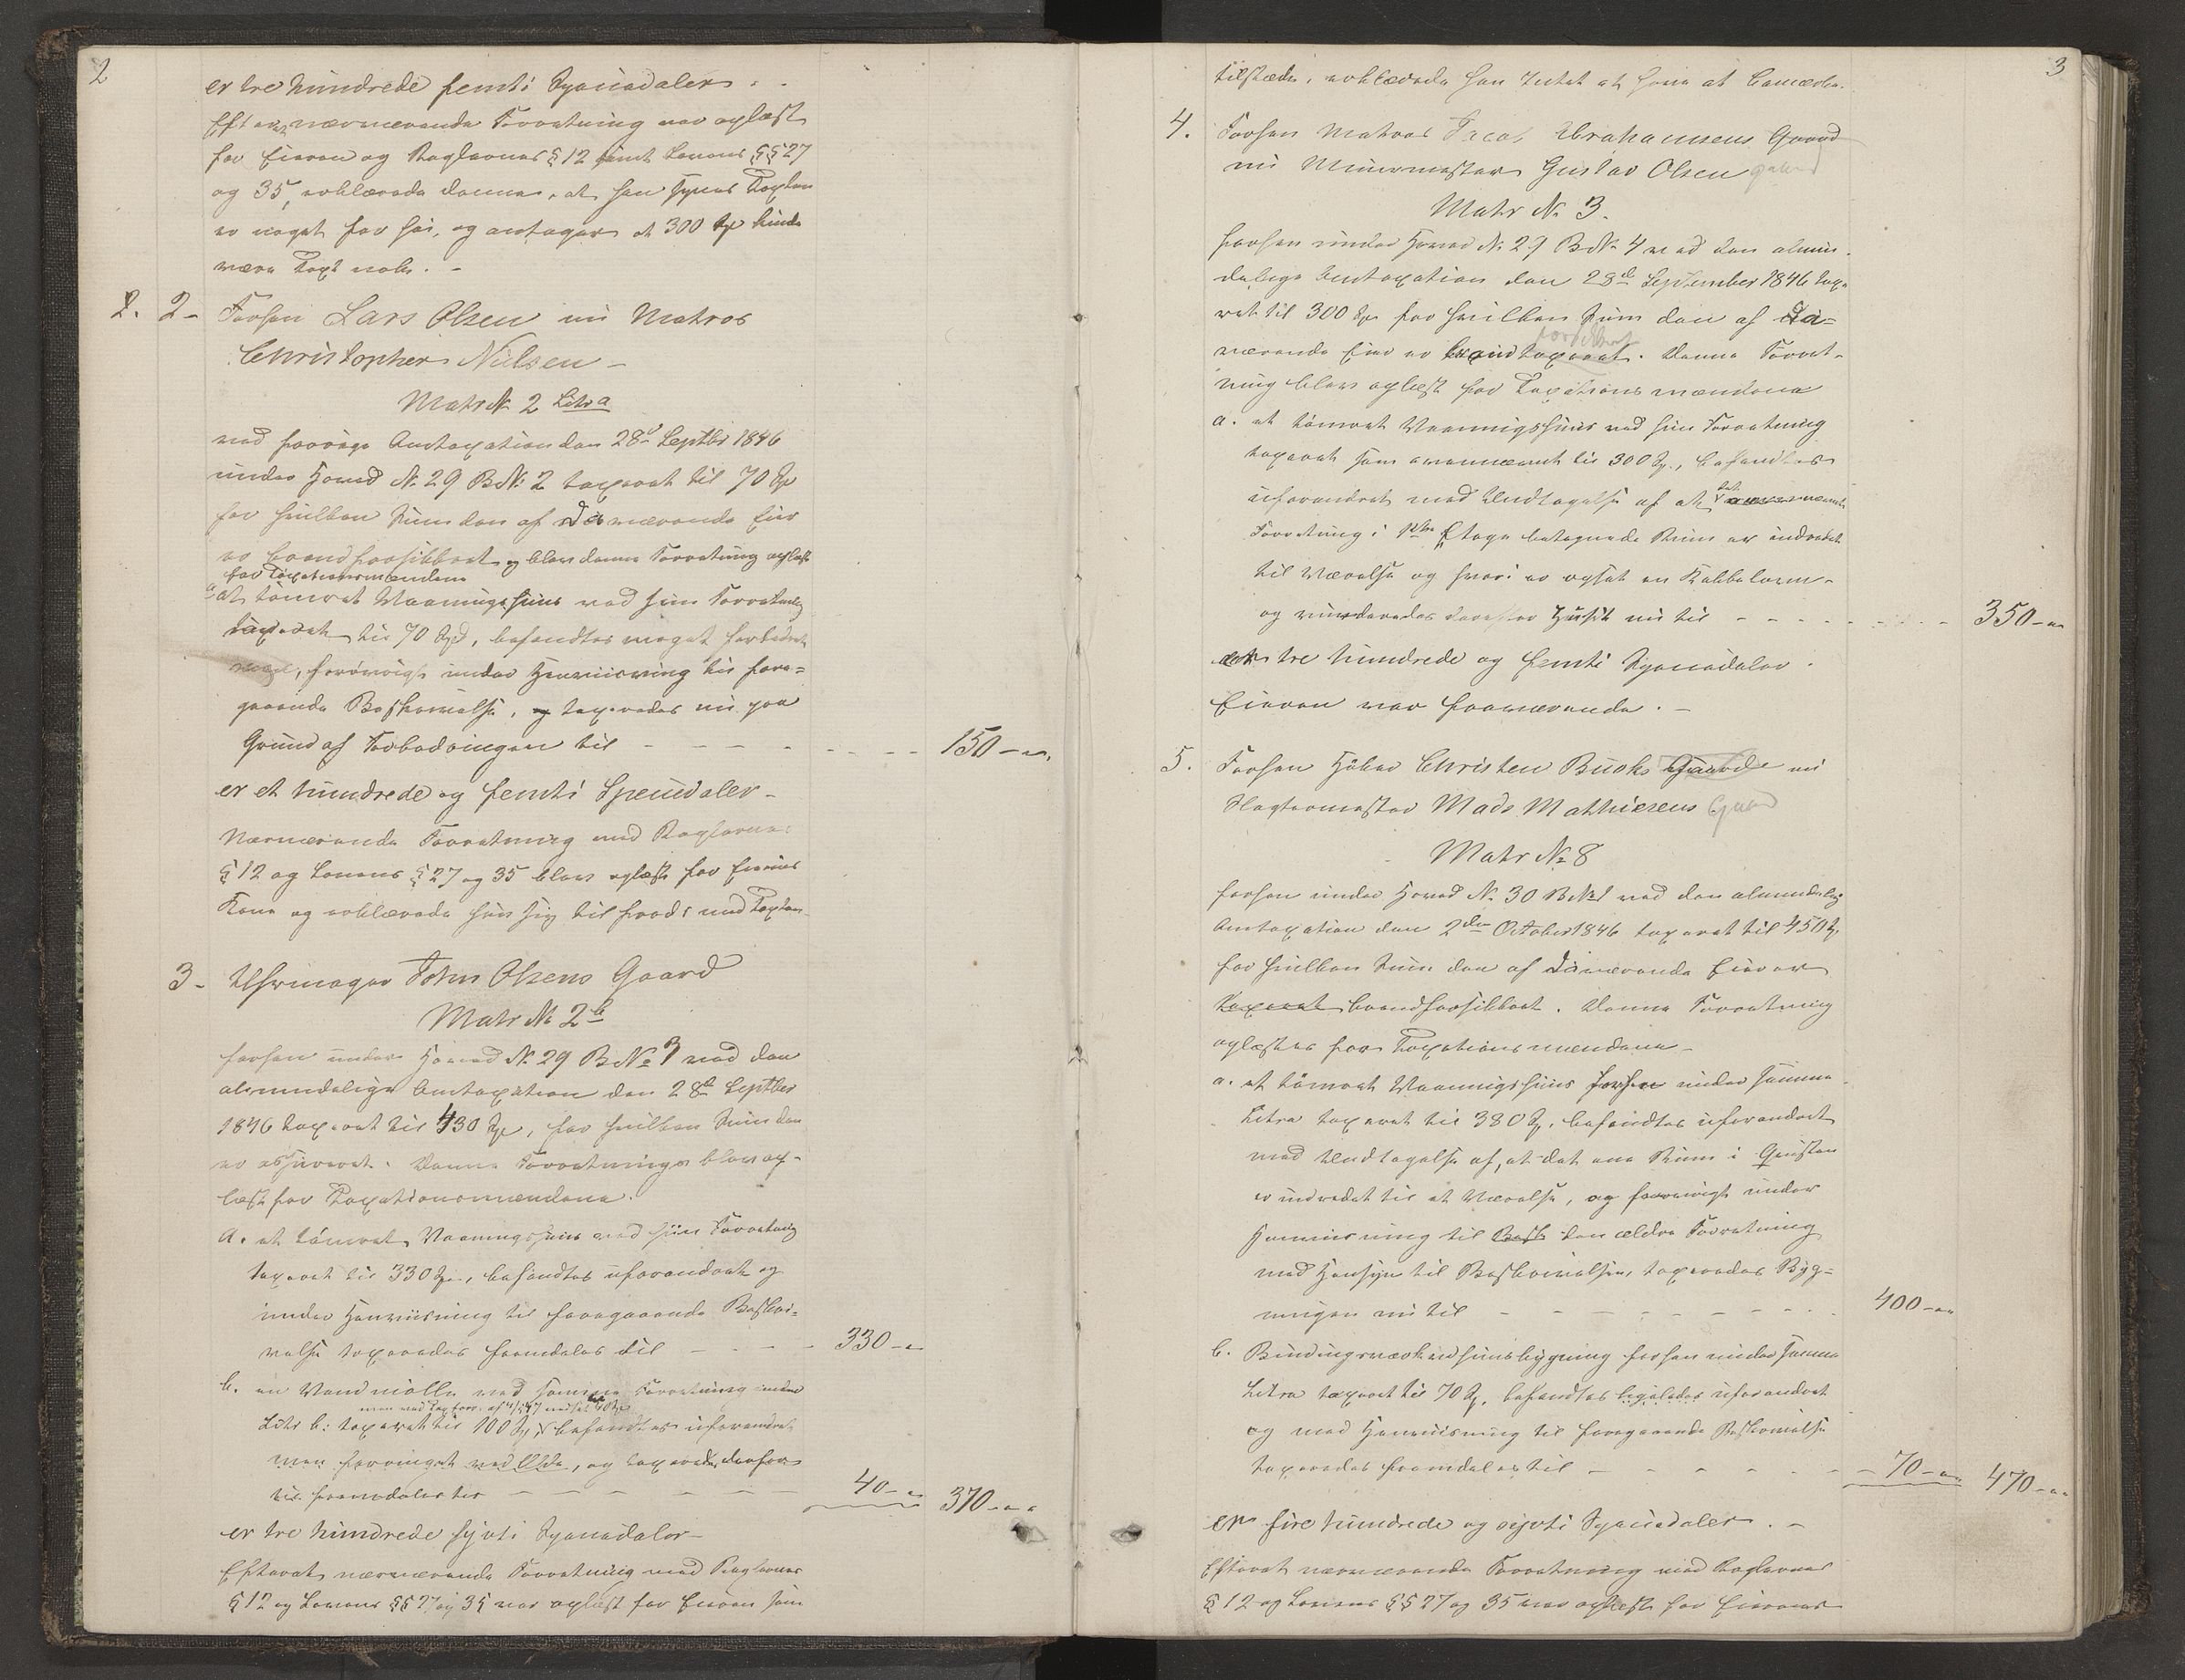 2
er tre hundrede femti Speciedaler.
Efterat nærværende Forretning var oplæst
for Eieren og Reglernes § 12 samt Lovens §§ 27
og 35, erklærede denne, at han synes Taxten
er noget for høi, og antager at 300 Sp kunde
være Taxt nok. -
2. 2- Forhen Lars Olsen nu Matros
Christopher Nielsen -
Matr № 2 Litr a
ved forrige Omtaxation den 28d Septbr 1846
under Hoved № 29 B№ 2 taxeret til 70 Sp
for hvilken Sum den af daværende Eier
er brandforsikkret og blev denne Forretning oplæst
for Taxationsmændene
a. at tømret Vaaningshuus ved hiin Forretning
taxeret til 70 Spd, befandtes meget forbedret
forøvrigt under Henviisning til fore-
gaaende Beskrivelse, og taxeredes nu paa
Grund af Forbedringen til - - - - 150 - "
er et hundrede og femti Speciedaler -
Nærværende Forretning med Reglernes
§ 12 og Lovens § 27 og 35 blev oplæst for Eierens
Kone og erklærede hun sig tilfreds med Taxten.
3- Uhrmager John Olsens Gaard
Matr № 2 b
forhen under Hoved № 29 B№ 3 ved den
almindelige Omtaxation den 28d Septbr
1846 taxeret til 430 Sp, for hvilken Sum den
er assureret. Denne Forretning blev op-
læst for Taxationsmændene.
a. et tømret Vaaningshuus ved hiin Forretning
taxeret til 330 Sp, befandtes uforandret og
under Henviisning til foregaaende Beskri-
velse taxeredes fremdeles til - - - - 330 - "
b. en Vandmølle ved samme Forretning under
men ved Taxforr. af 47 nedsat til 40 Sp
Litr b: taxeret til 100 Sp, befandtes uforandret
men forringet ved Elde, og taxeredes derfor
til fremdeles til - - - - 40 - " 370 - "
er tre hundrede sytti Speciedaler -
Efterat nærværende Forretning med Reglernes
§ 12 og Lovens §§ 27 og 35 var oplæst for Eieren som
3
tilstede, erklærede han Intet at have at bemærke.
4. Forhen Matros Jacob Abrahamsens Gaard
nu Muurmester Gustav Olsen gaard
Matr № 3.
forhen under Hoved № 29 B№ 4 ved den almin-
delige Omtaxation den 28d September 1846 taxe-
ret til 300 Sp for hvilken Sum den af da-
forsikkret
værende Eier er brandtaxeret. Denne Forret-
ning blev oplæst for Taxationsmændene
a. et tømret Vaaningshuus ved hiin Forretning
taxeret som ovennævnt til 300 Sp., befandtes
uforandret med Undtagelse af at det ovennævnte
Forretning i 1ste Etage betegnede Rum er indredet
til Værelse og hvori er opsat en Kakkelovn -
og vurderedes derefter Huset nu til - - - - 350 - "
er tre hundrede og femti Speciedaler.
Eieren var fraværende. -
5. Forhen Høker Christen Buchs Gaard nu
Slagtermester Mads Mathiesens Gaard
Matr № 8
forhen under Hoved № 30 B№ 1 ved den almindelige
Omtaxation den 2den October 1846 taxeret til 450 Sp
for hvilken Sum den af daværende Eier er
taxeret brandforsikkret. Denne Forretning
oplæstes for Taxationsmændene -
a. et tømret Vaaningshuus forhen under samme
Litra taxeret til 380 Sp. befandtes uforandret
med Undtagelse af, at det ene Rum i Qvisten
er indredet til et Værelse, og forøvrigt under
Henviisning til Besk den ældre Forretning
med Hensyn til Beskrivelsen, taxeredes Byg-
ningen nu til - - - - 400 - "
b. Bindingsverksudhuusbygning forhen under samme
Litra taxeret til 70 Sp. befandtes ligeledes uforandret
og med Henviisning til foregaaende Beskrivelse
taxeredes fremdeles til - - - - 70 - " 470 - "
er fire hundrede og sytti Speciedaler. -
Efterat nærværende Forretning med Reglernes
§ 12 og Lovens §§ 27 og 35 var oplæst for Eierens